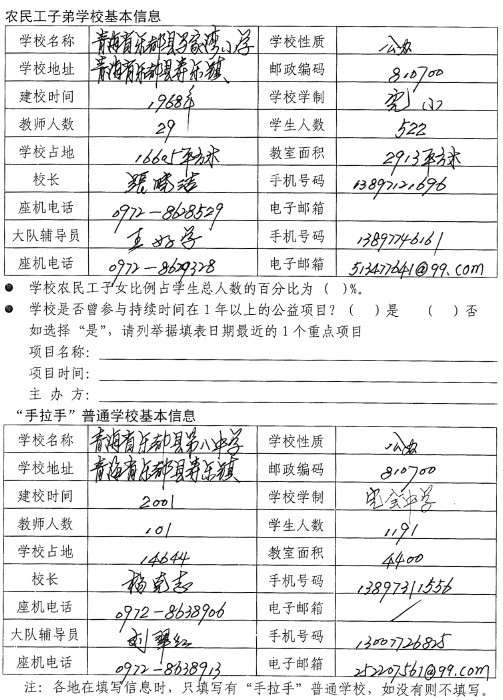 农民工子弟学校基本信息
学校名称 青海省乐都县 湾小学 学校性质 公办
学校地址 青海省乐都县寿乐镇 邮政编码 810700
建校时间 1968年 学校学制 完小
教师人数 29 学生人数 522
学校占地 16605平方米 教室面积 2913平方米
校长 张晓 手机号码 13897121696
座机电话 0972-8628529 电子邮箱
大队辅导员 王 学 手机号码 13897746161
座机电话 0972-8629328 电子邮箱 513477641@99.com
● 学校农民工子女比例占学生总人数的百分比为（ ）%。
● 学校是否曾参与持续时间在1年以上的公益项目？（ ）是 （ ）否
如选择“是”，请列举据填表日期最近的1个重点项目
项目名称：
项目时间：
主 办 方：
“手拉手”普通学校基本信息
学校名称 青海省乐都县第八中学 学校性质 公办
学校地址 青海省乐都县寿乐镇 邮政编码 810700
建校时间 2001 学校学制 完全中学
教师人数 101 学生人数 1191
学校占地 14644 教室面积 4400
校长 杨 志 手机号码 13897311556
座机电话 0972-8638906 电子邮箱 /
大队辅导员 刘翠红 手机号码 13007726825
座机电话 0972-8638913 电子邮箱 252207561@99.com
注：各地在填写信息时，只填写有“手拉手”普通学校，如没有则不填写。